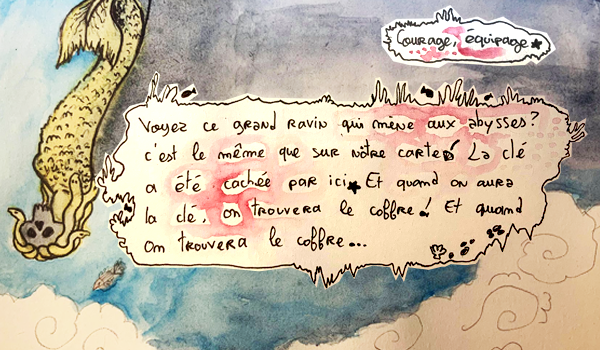 Courage, équipage.
Voyez ce grand ravin qui mène aux abysses?
c'est le même que sur nôtre carte! La clé
a été cachée par ici. Et quand on aura
la clé, on trouvera le coffre! Et quand
on trouvera le coffre...